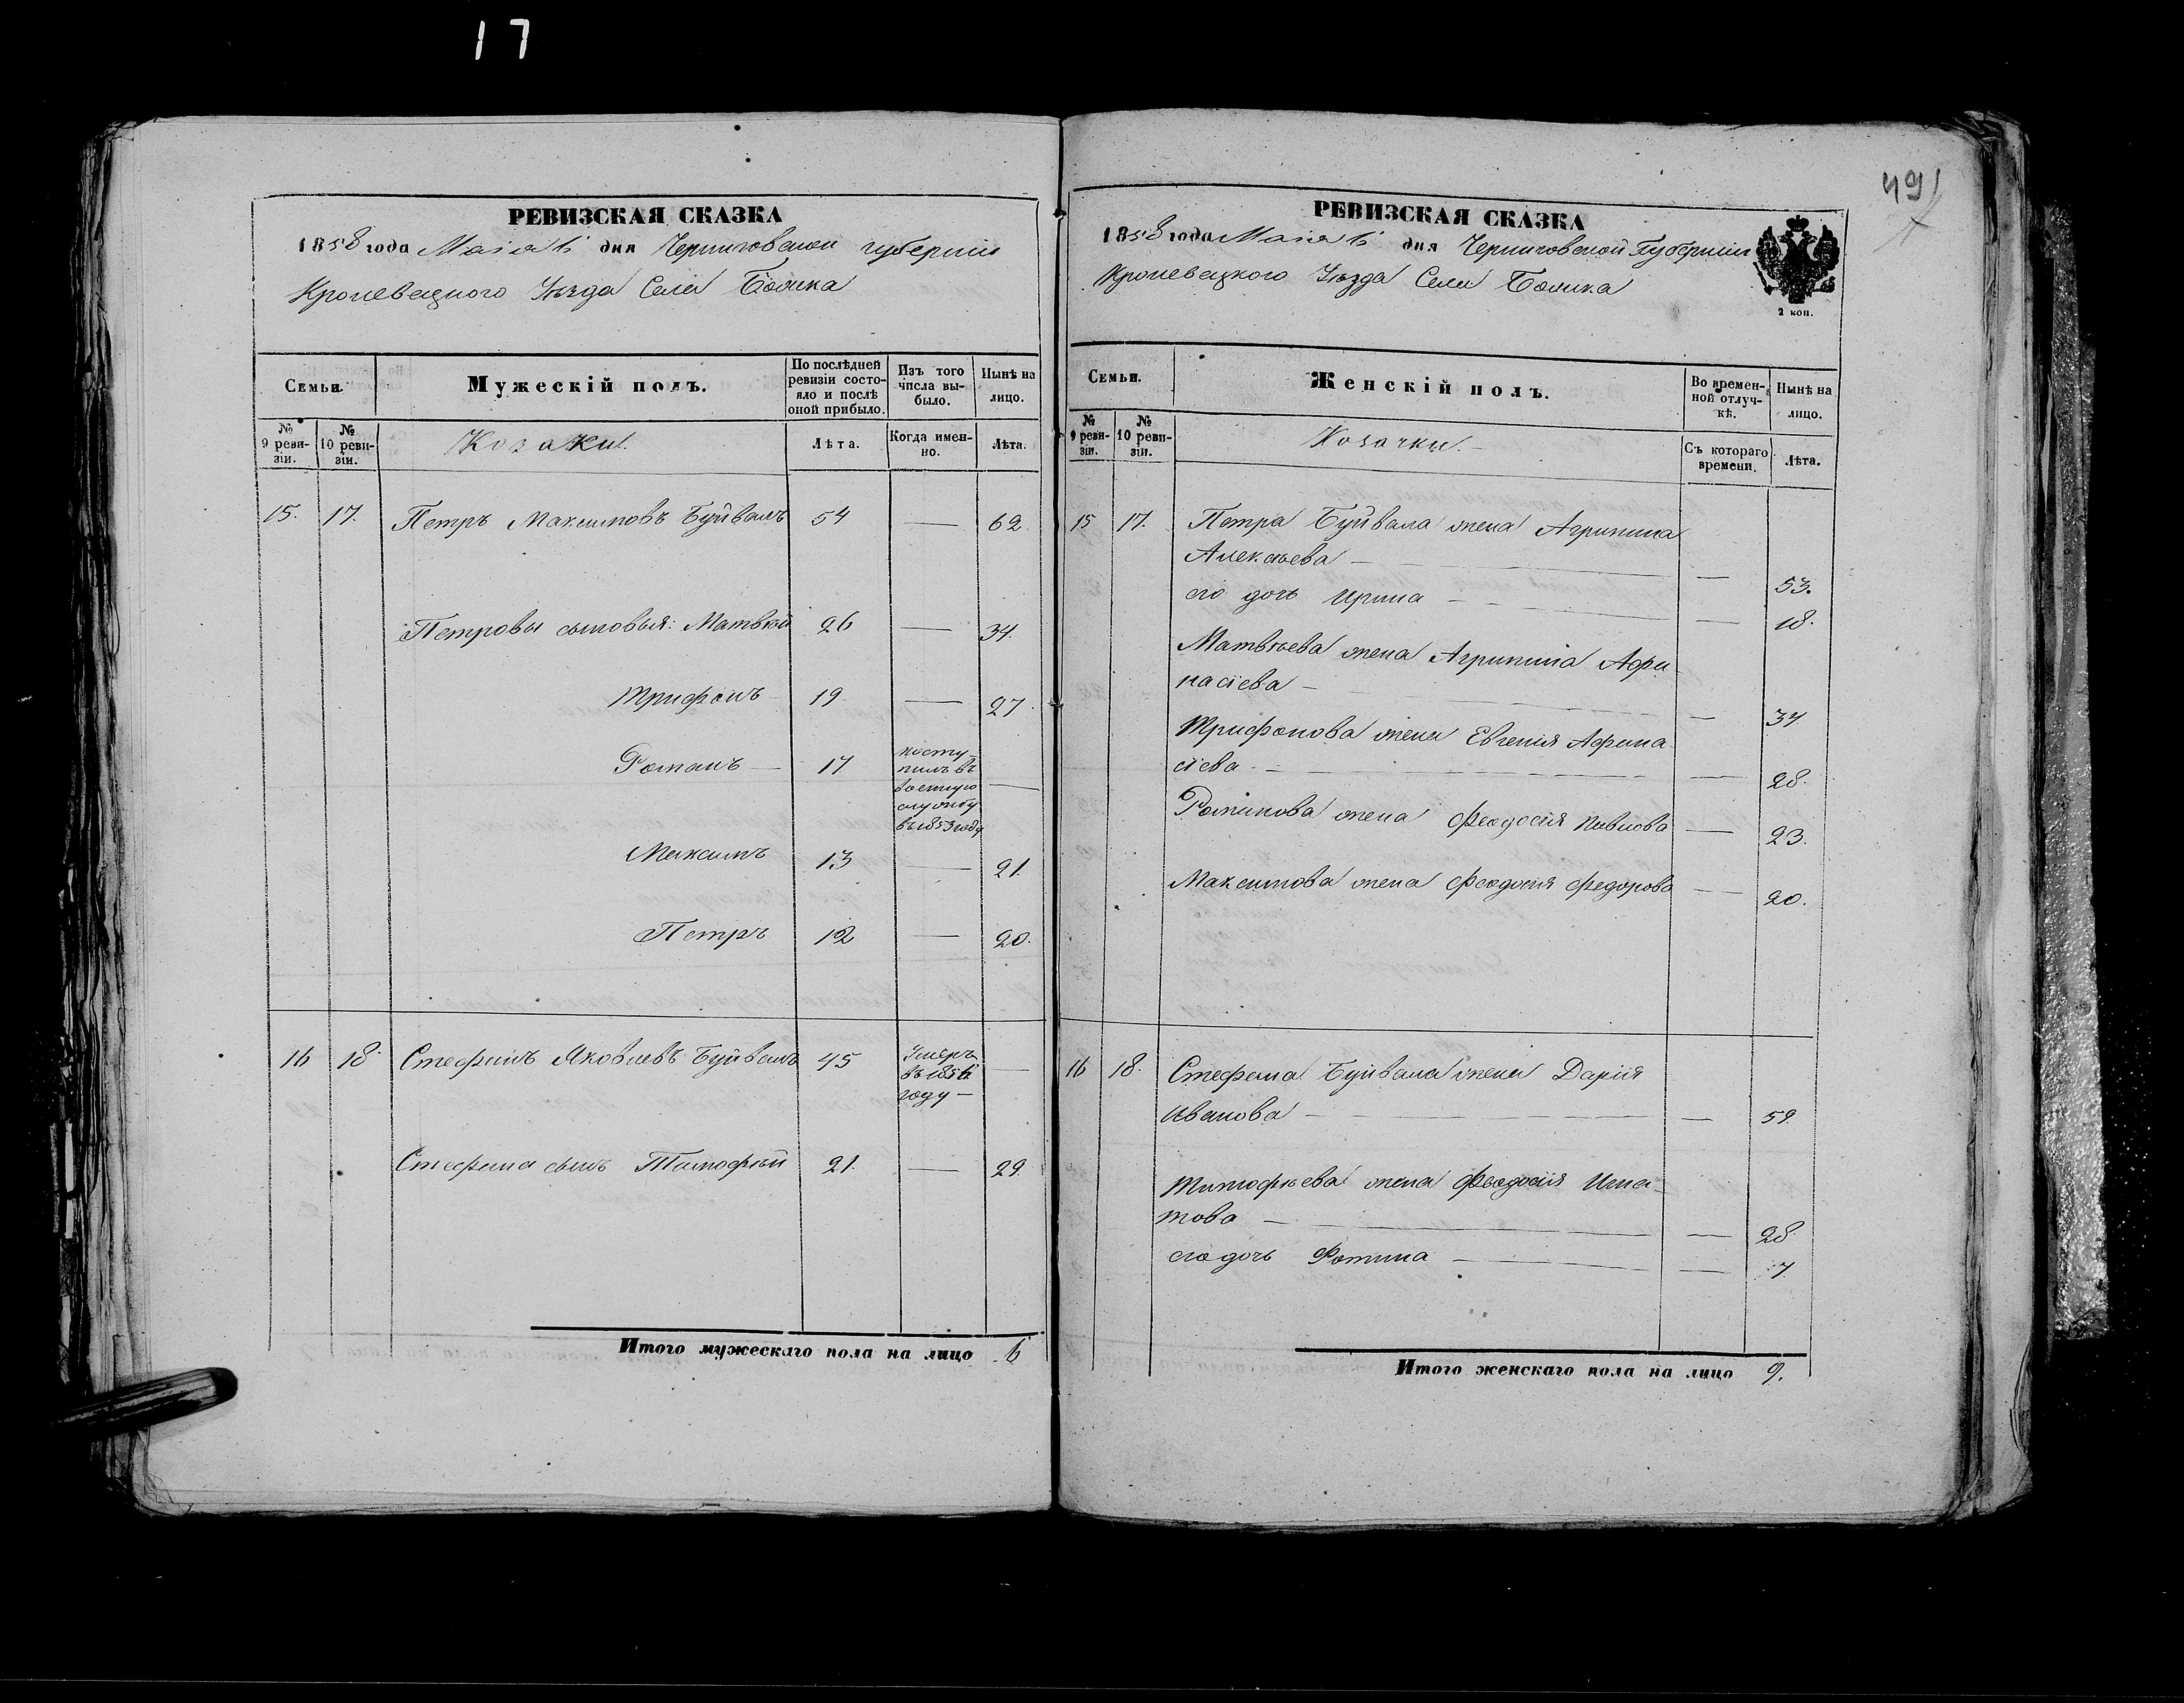 17
РЕВИЗСКАЯ СКАЗКА
1858 года Маія 6 дня Черниговской губерніи
Кролевецкого Уѣзда Села
Семьи. Мужескій полъ. По послѣдней ревизіи состояло и послѣ оной прибыло. Изъ того числа выбыло. Нынѣ на лицо.
№ 9 ревизіи. № 10 ревизіи. Козаки. Лѣта. Когда именно. Лѣта.
15. 17. Петръ Максимовъ Буйвалъ 54 — 62.
Петровы сыновья: Матвѣй 26 — 34.
Трифонъ 19. — 27.
Романъ — 17 посту-
пилъ въ
военную
службу
въ 1853 году —
Максимъ 13 — 21.
Петръ 12 — 20.
16 18. Стефанъ Яковлевъ Буйвалъ 45 Умеръ
въ 1856
году — —
Стефана сынъ Тимофѣй 21. — 29.
Итого мужескаго пола на лицо 6
491
РЕВИЗСКАЯ СКАЗКА
1858 года Маія 6 дня Черниговской Губерніи
Кролевецкого Уѣзда Села
2 коп.
Семьи. Женскій полъ. Во временной отлучкѣ. Нынѣ на лицо.
№ 9 ревизіи. № 10 ревизіи. Козачки. — Съ котораго времени. Лѣта.
15 17. Петра Буйвала жена Агрипина
Алексѣева — — 53.
его дочь Ирина — — 18.
Матвѣева жена Агрипина Афа-
насіева — — 34
Трифонова жена Евгенія Афана-
сіева — — 28.
Романова жена Феодосія Павлова — 23.
Максимова жена Феодосія Федорова — 20.
16 18. Стефана Буйвала жена Дарія
Иванова — — 59.
Тимофѣева жена Феодосія Игна-
това — — 28.
его дочь Фотина — — 7.
Итого женскаго пола на лицо 9.